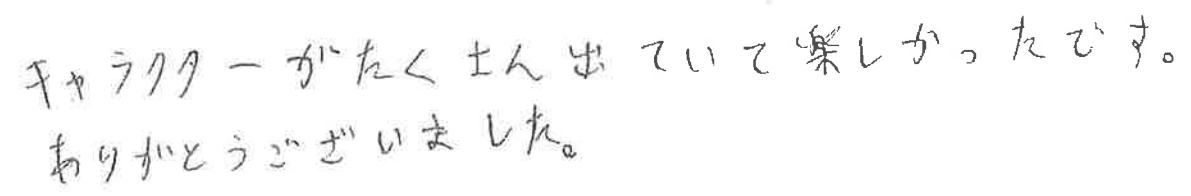 キャラクターがたくさん出ていて楽しかったです。
ありがとうございました。